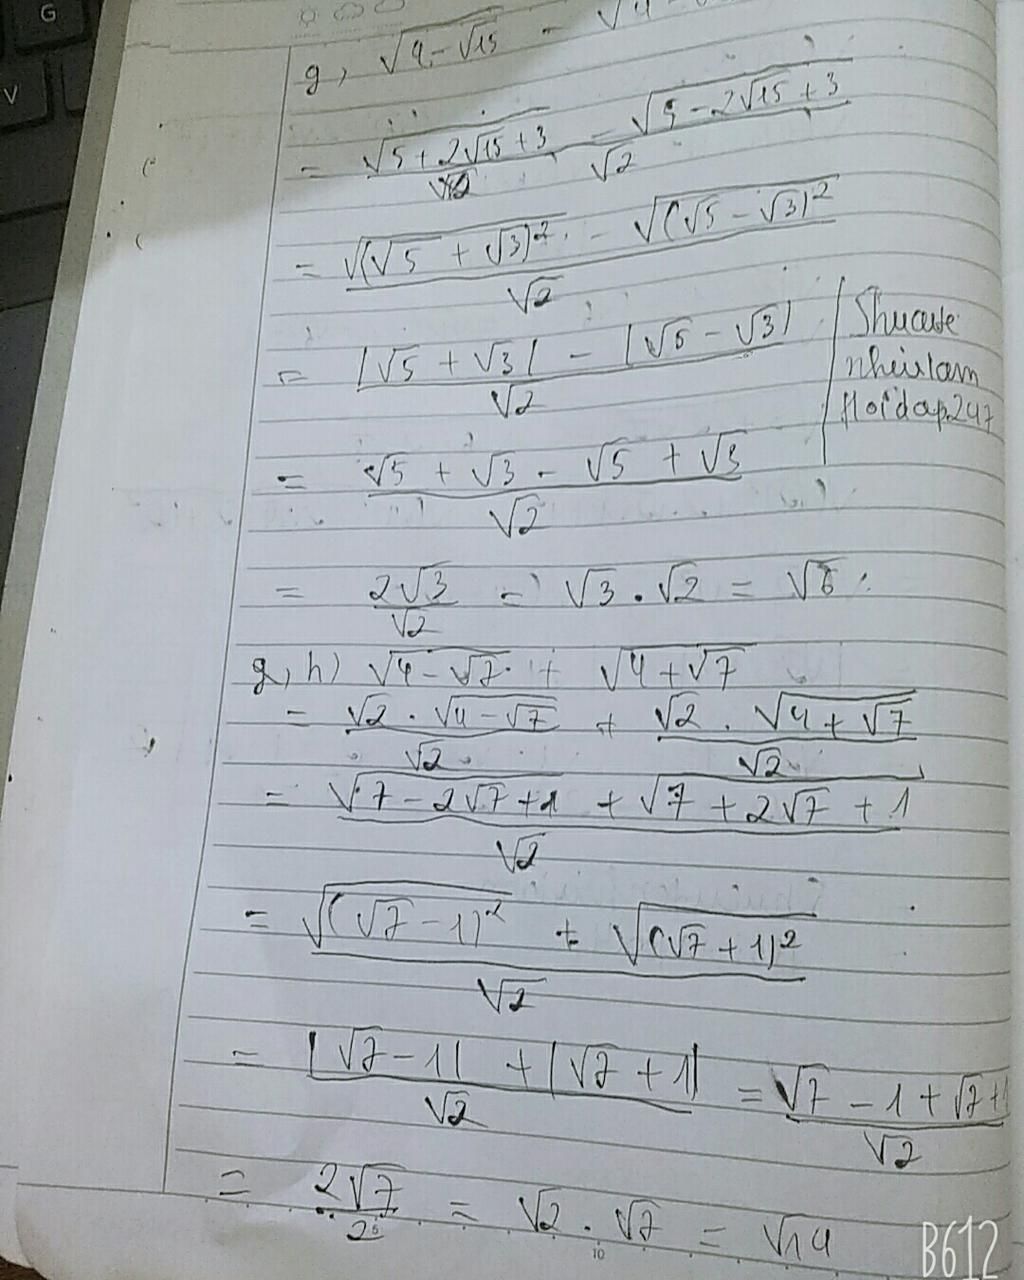 G
V
g, √(4-√15) - √(4
= √(5+2√15+3)/√2 - √(5-2√15+3)/√2
= (√((√5+√3)²) - √((√5-√3)²))/√2
= (|√5+√3| - |√5-√3|)/√2
Shucute
nheiulam
Hoidap247
= (√5+√3-√5+√3)/√2
= 2√3/√2 = √3.√2 = √6.
g, h) √(4-√7) + √(4+√7)
= (√2.√(4-√7))/√2 + (√2.√(4+√7))/√2
= (√(7-2√7+1) + √(7+2√7+1))/√2
= (√((√7-1)²) + √((√7+1)²))/√2
= (|√7-1| + |√7+1|)/√2 = (√7-1+√7+1)/√2
= 2√7/2 = √2.√7 = √14
10
B612